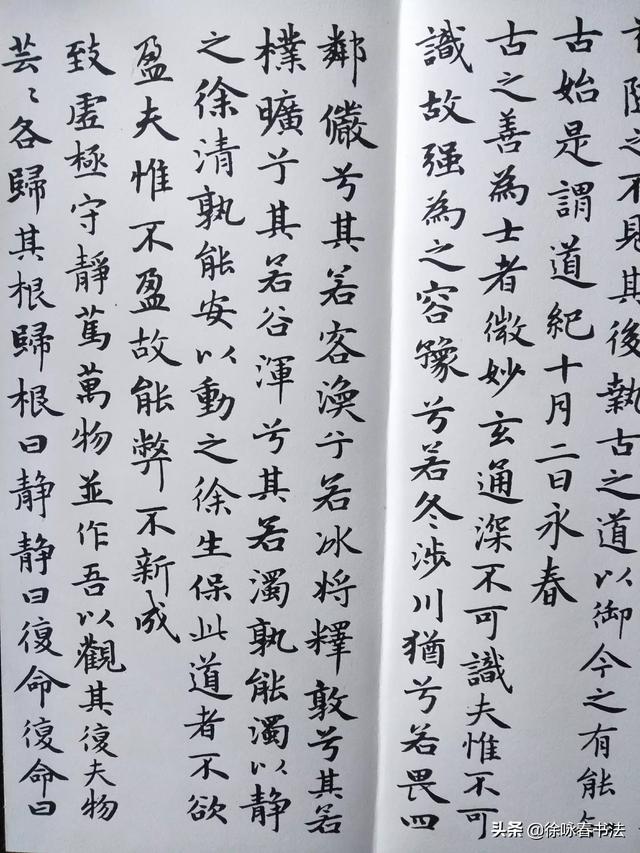 随之不見其後執古之道以御今之有能知
古始是謂道紀十月二日永春
古之善為士者微妙玄通深不可識夫惟不可
識故强為之容豫兮若冬涉川猶兮若畏四
鄰儼兮其若客渙兮若冰将釋敦兮其若
樸曠兮其若谷渾兮其若濁孰能濁以静
之徐清孰能安以動之徐生保此道者不欲
盈夫惟不盈故能弊不新成
致虛極守靜篤萬物並作吾以觀其復夫物
芸〻各歸其根歸根曰静静曰復命復命曰
头条 @徐咏春书法